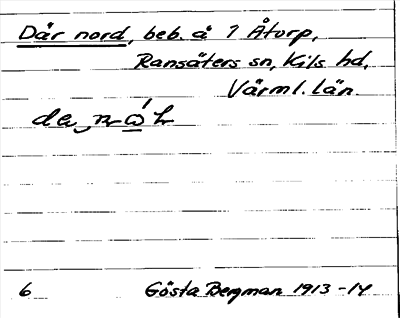 Där nord, beb. å 1 Åtorp,
Ransäters sn, Kils hd,
Värml. län.
6 Gösta Bergman 1913-14